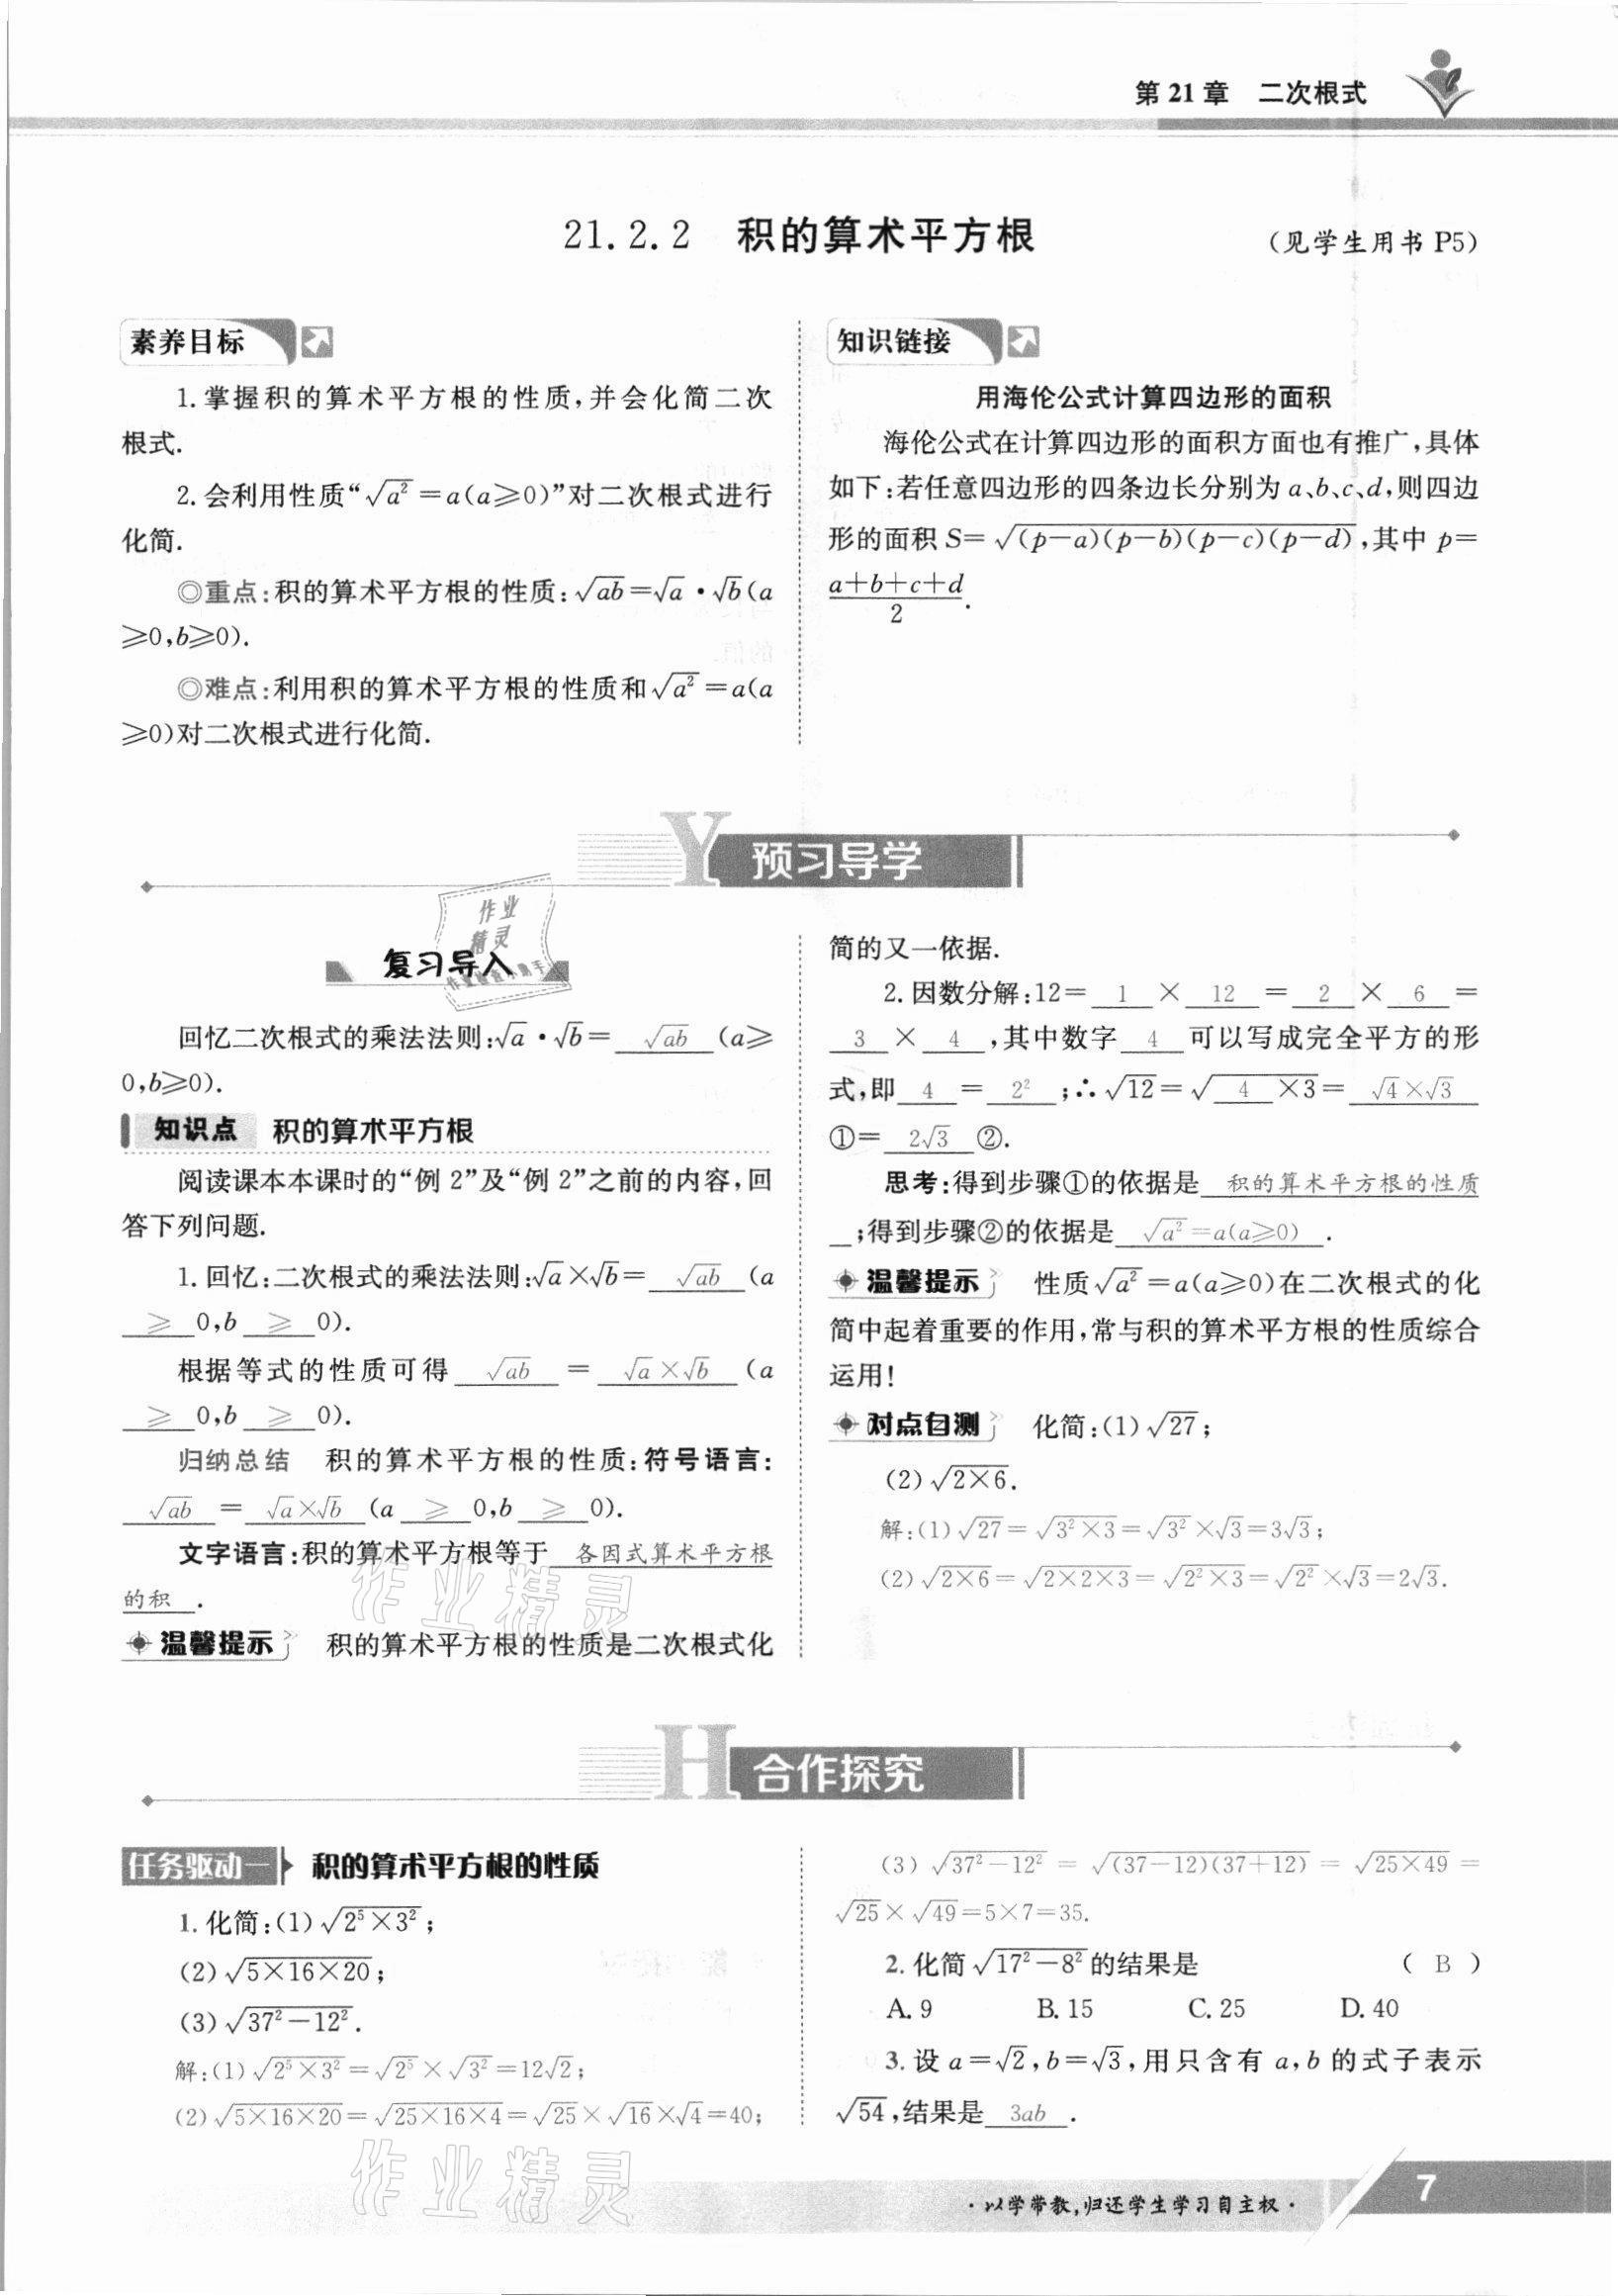 第 21 章　二次根式
21.2.2　积的算术平方根
(见学生用书 P5)
素养目标
1. 掌握积的算术平方根的性质,并会化简二次
根式.
2. 会利用性质“√a² = a(a≥0)”对二次根式进行
化简.
◎重点:积的算术平方根的性质:√ab=√a·√b(a
≥0,b≥0).
◎难点:利用积的算术平方根的性质和√a² =a(a
≥0)对二次根式进行化简.
知识链接
用海伦公式计算四边形的面积
海伦公式在计算四边形的面积方面也有推广,具体
如下:若任意四边形的四条边长分别为 a、b、c、d,则四边
形的面积 S= √(p-a)(p-b)(p-c)(p-d),其中 p=
(a+b+c+d)/2.
Y 预习导学
作业
精灵
复习导入
回忆二次根式的乘法法则:√a·√b= √ab (a≥
0,b≥0).
知识点　积的算术平方根
阅读课本本课时的“例 2”及“例 2”之前的内容,回
答下列问题.
1. 回忆:二次根式的乘法法则:√a×√b= √ab (a
≥ 0,b ≥ 0).
根据等式的性质可得 √ab = √a×√b (a
≥ 0,b ≥ 0).
归纳总结　积的算术平方根的性质:符号语言:
√ab = √a×√b (a ≥ 0,b ≥ 0).
文字语言:积的算术平方根等于 各因式算术平方根
的积 .
温馨提示　积的算术平方根的性质是二次根式化
简的又一依据.
2. 因数分解:12= 1 × 12 = 2 × 6 =
3 × 4 ,其中数字 4 可以写成完全平方的形
式,即 4 = 2² ;∴√12=√ 4 ×3 = √4×√3
①= 2√3 ②.
思考:得到步骤①的依据是 积的算术平方根的性质
;得到步骤②的依据是 √a²=a(a≥0) .
温馨提示　性质√a² =a(a≥0)在二次根式的化
简中起着重要的作用,常与积的算术平方根的性质综合
运用!
对点自测　化简:(1)√27;
(2)√2×6.
解:(1)√27=√3²×3=√3²×√3=3√3;
(2)√2×6=√2×2×3=√2²×3=√2²×√3=2√3.
作业精灵
H 合作探究
任务驱动一　积的算术平方根的性质
1. 化简:(1)√2⁵×3²;
(2)√5×16×20;
(3)√37²-12².
解:(1)√2⁵×3²=√2⁵×√3²=12√2;
(2)√5×16×20=√25×16×4=√25×√16×√4=40;
(3)√37²-12² = √(37-12)(37+12) = √25×49 =
√25×√49=5×7=35.
2. 化简√17²-8²的结果是　( B )
A. 9　B. 15　C. 25　D. 40
3. 设 a=√2,b=√3,用只含有 a,b 的式子表示
√54,结果是 3ab .
作业精灵
·以学带教,归还学生学习自主权·
7